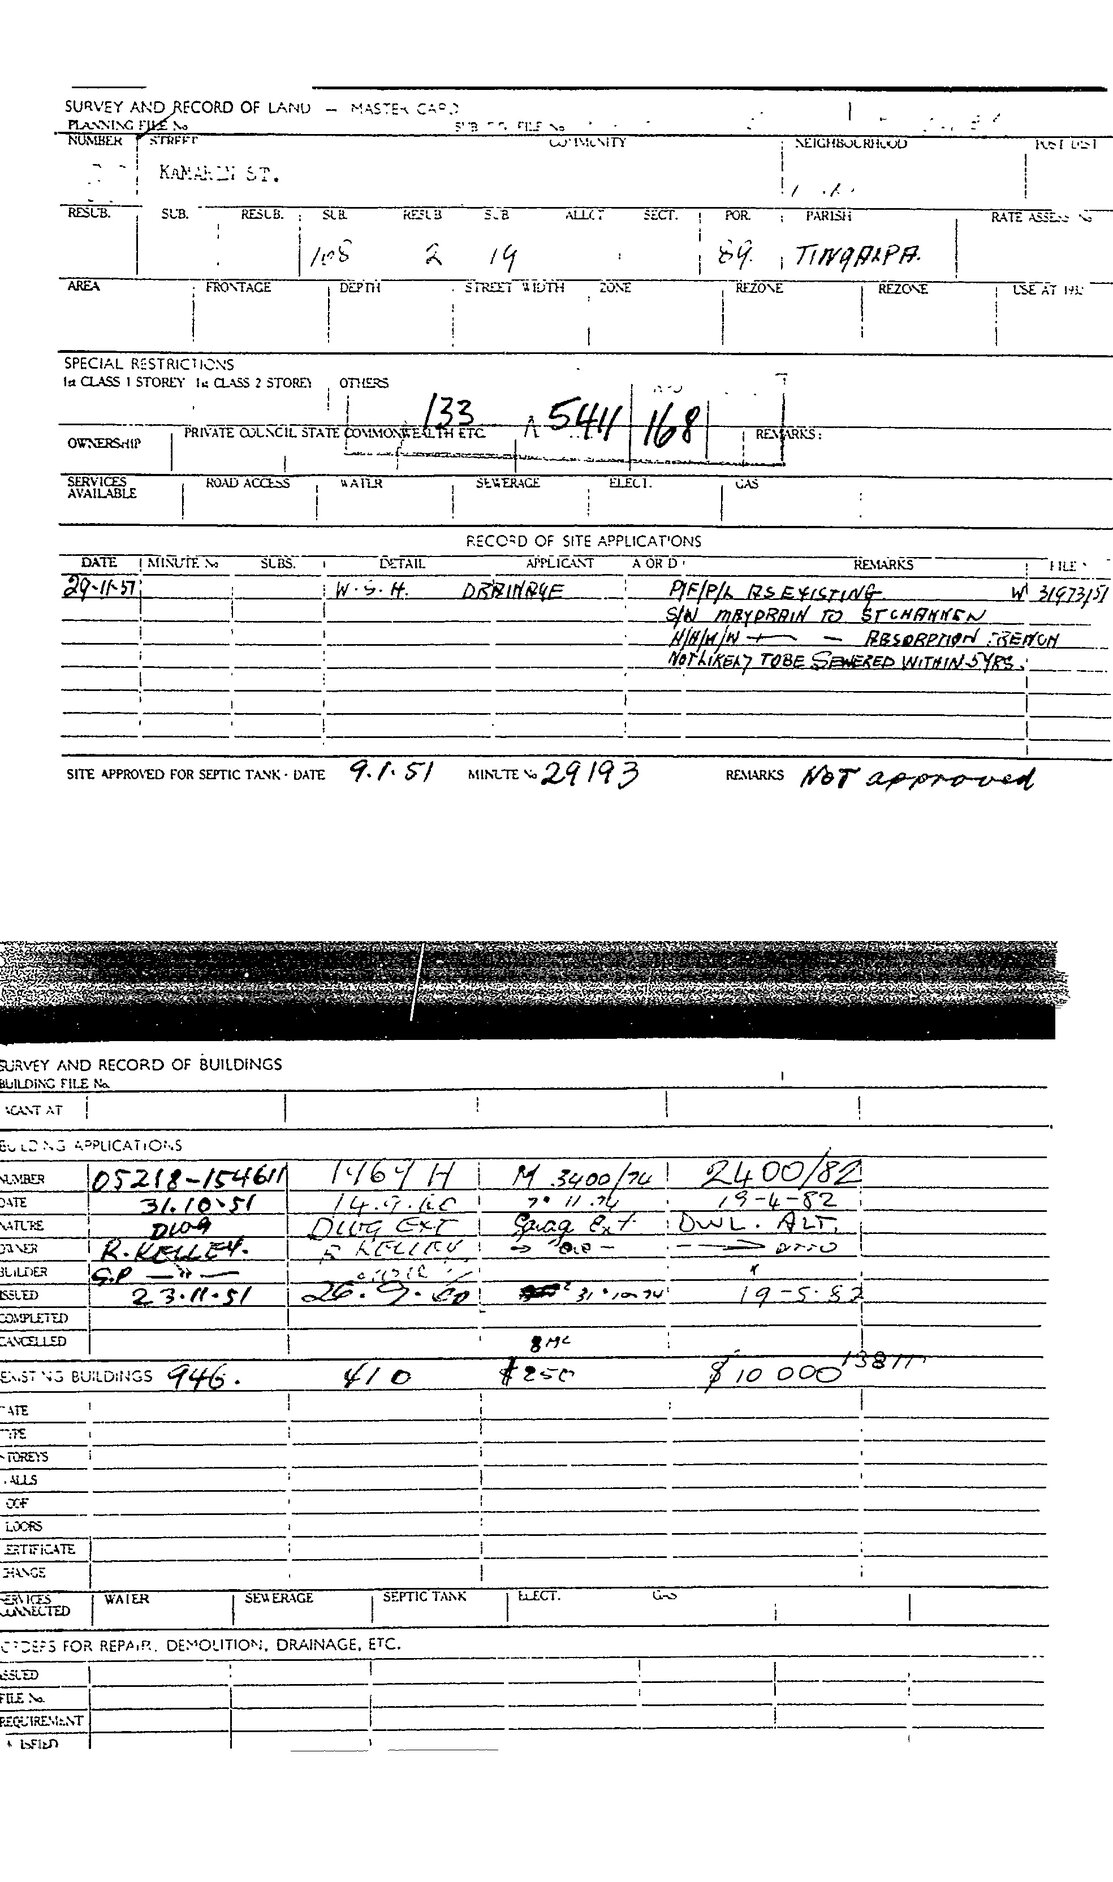 SURVEY AND RECORD OF LAND — MASTER CARD
PLANNING FILE No FILE No
NUMBER STREET COMMUNITY NEIGHBOURHOOD POST DIST
ST.
RESUB. SUB. RESUB. SUB. RESUB SUB ALLOT SECT. POR. PARISH RATE ASSESS No
108 2 19 89. TINGALPA.
AREA FRONTAGE DEPTH STREET WIDTH ZONE REZONE REZONE USE AT
SPECIAL RESTRICTIONS
1st CLASS 1 STOREY 1st CLASS 2 STOREY OTHERS
133 A 5411 168
OWNERSHIP PRIVATE COUNCIL STATE COMMONWEALTH ETC. REMARKS:
SERVICES AVAILABLE ROAD ACCESS WATER SEWERAGE ELECT. GAS
RECORD OF SITE APPLICATIONS
DATE MINUTE No SUBS. DETAIL APPLICANT A OR D REMARKS FILE
29·11·51 W.S.H. DRAINAGE P/F/P/L AS EXISTING W 31973/51
S/W MAY DRAIN TO ST CHANNEL
H/H/H/W — ABSORPTION
NOT LIKELY TO BE SEWERED WITHIN 5 YRS.
SITE APPROVED FOR SEPTIC TANK - DATE 9.1.51 MINUTE No 29193 REMARKS NOT approved
SURVEY AND RECORD OF BUILDINGS
BUILDING FILE No.
ACANT AT
BUILDING APPLICATIONS
NUMBER 05218-154611 1469 H M 3400/74 2400/82
DATE 31.10.51 14.9.60 7·11.74 19-4-82
NATURE DWG DWG EXT Garage Ext. DWL. ALT.
OWNER R. KELLEY. R KELLEY
BUILDER G.P — " —
ISSUED 23.11.51 26.9.60 31·10·74 19-5-82
COMPLETED
CANCELLED
EXISTING BUILDINGS 946. 410 $250 $10 000
ATE
YPE
TOREYS
ALLS
OOF
LOORS
ERTIFICATE
CHANGE
SERVICES CONNECTED WATER SEWERAGE SEPTIC TANK ELECT. GAS
ORDERS FOR REPAIR, DEMOLITION, DRAINAGE, ETC.
ISSUED
FILE No.
REQUIREMENT